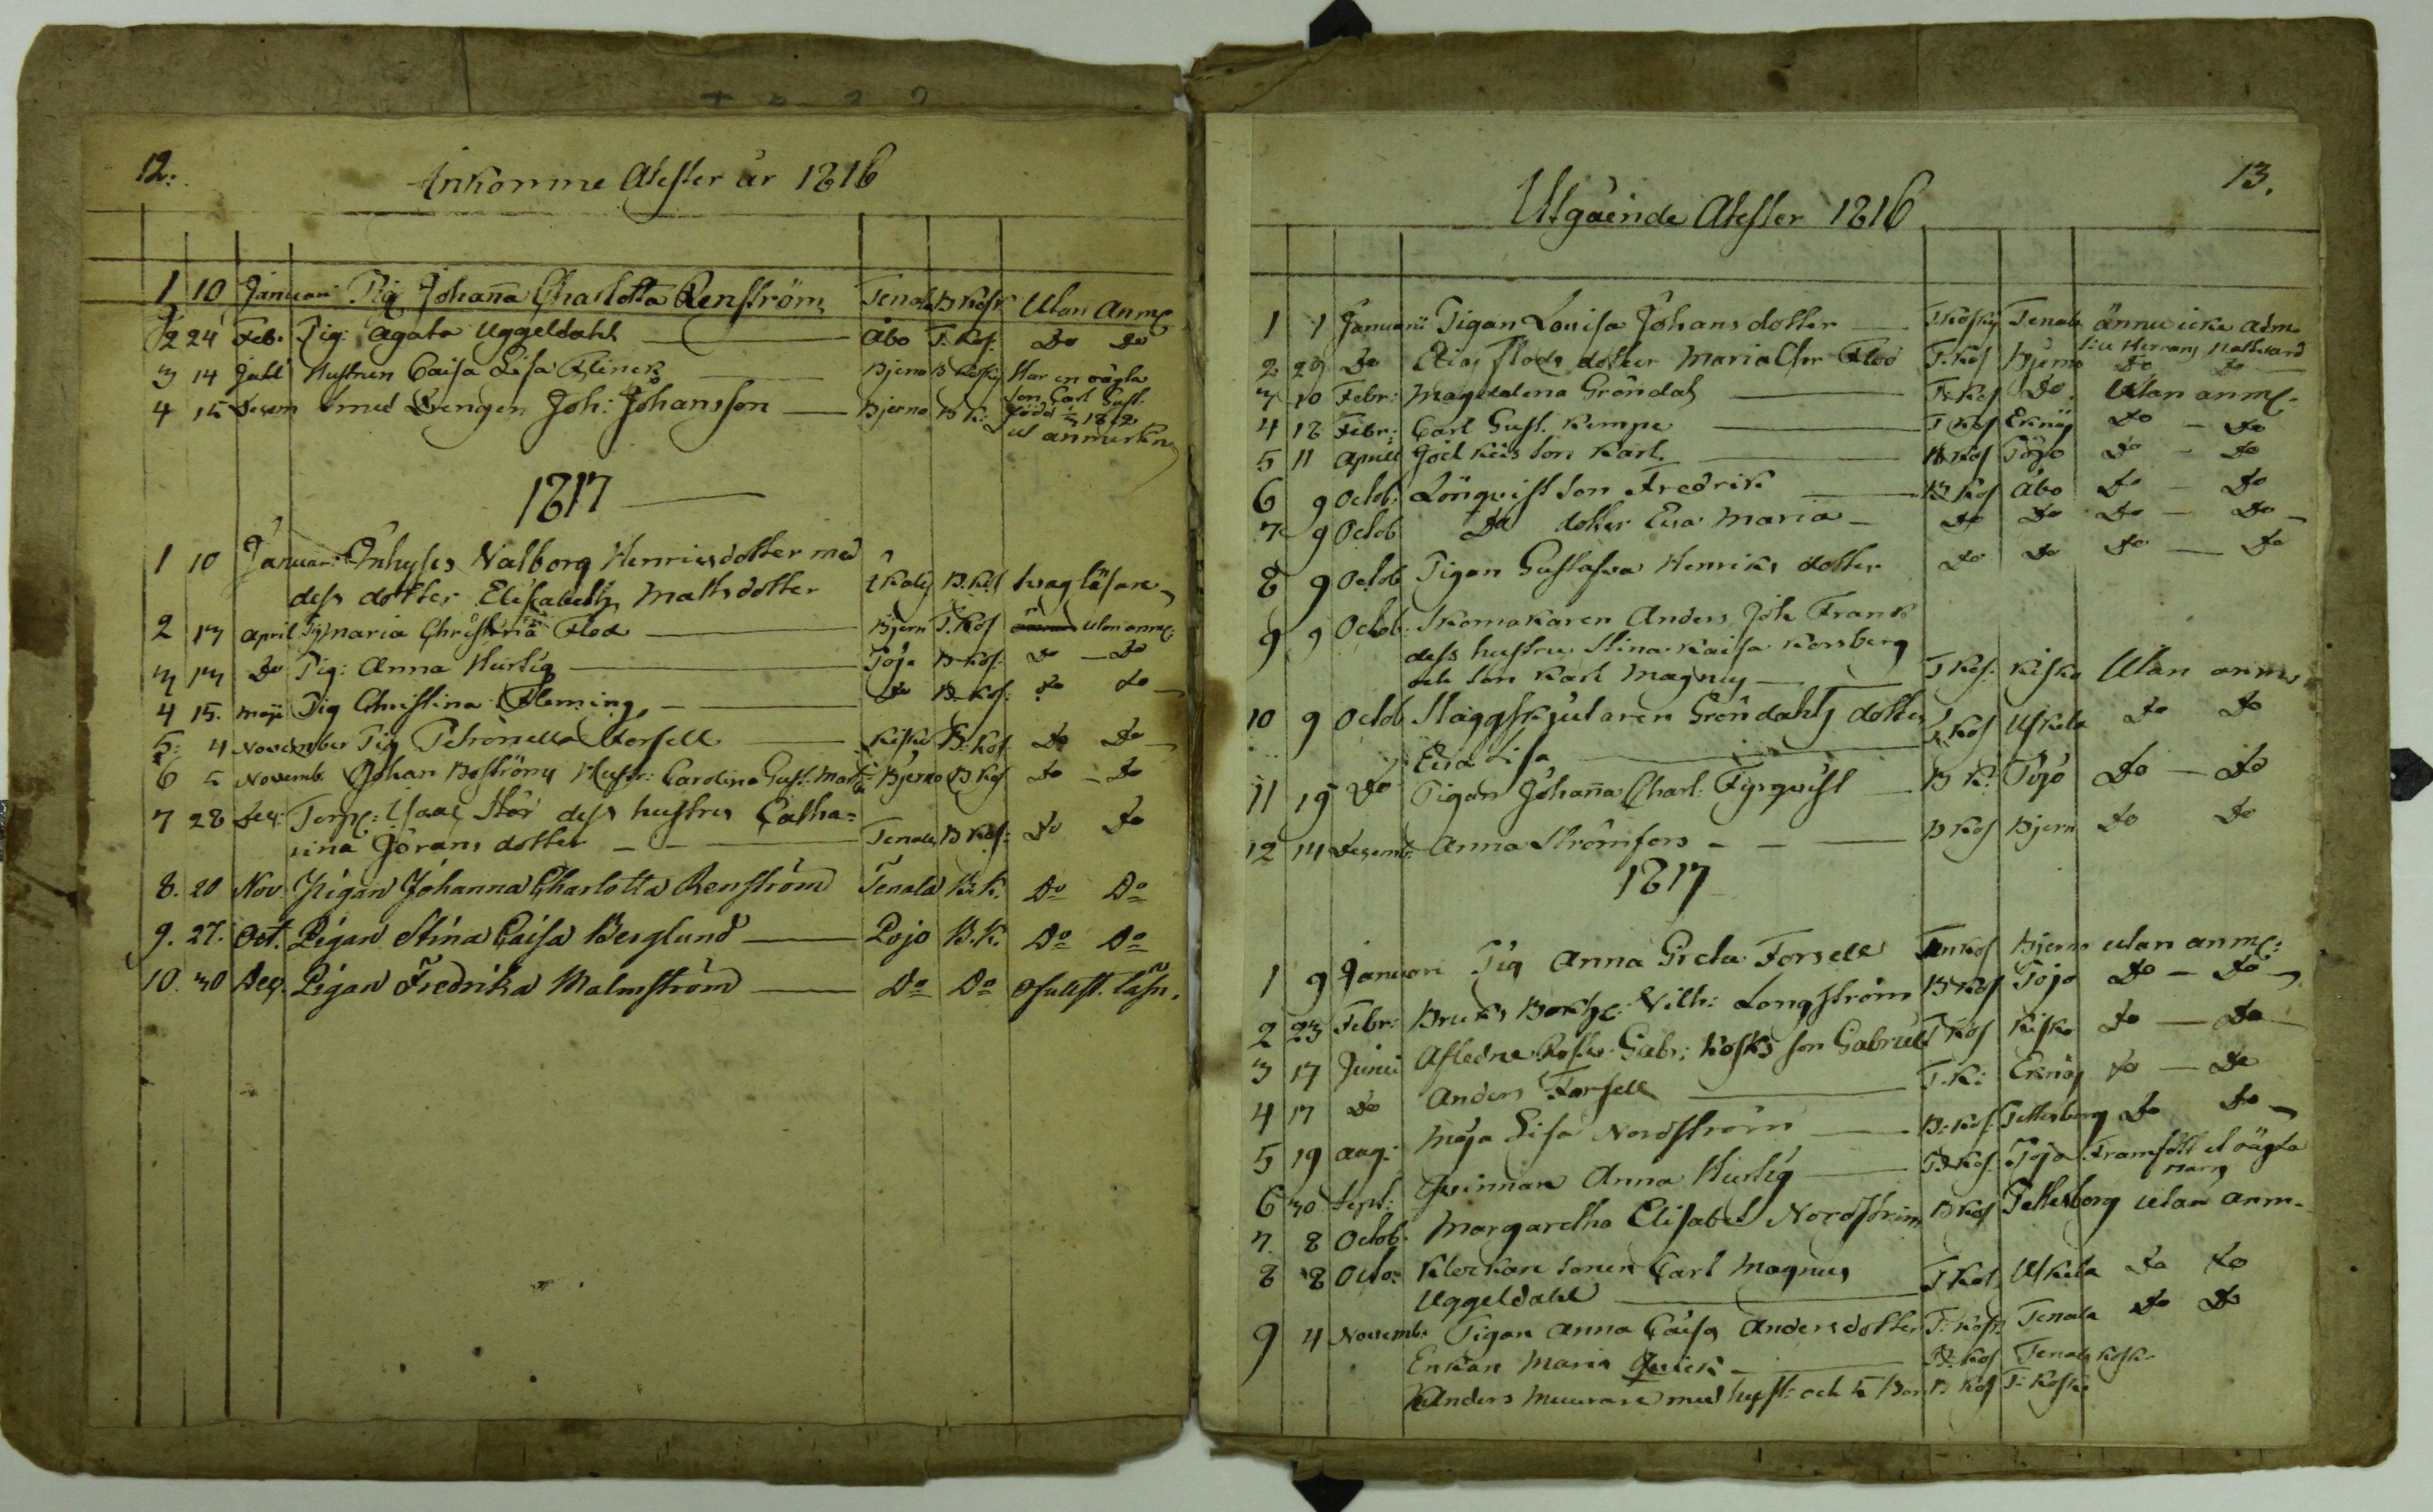 12.
Ankomne Atester år 1816
1 10 Januari Pig Johanna Charlotta Renström Tenala B Kosk Utan Anm:
2 24 Feb. Pig: Agata Uggeldahl Åbo T. Kos: Do Do
3 14 Juli Hustrun Caisa Lisa Flinck Bjerno B Kosk Har en oägta
son Carl Gust.
4 15 Decem med Drengen Joh: Johansson Bjerno B K: född 1812
ut anmerkn
1817
1 10 Januari Inhyses Valborg Henricsdotter med
dess dotter Elisabeth Mattsdotter B. Kos svag läsare
2 17 April Pig Maria Christina Flod Bjern T. Kos utan anm:
3 17 Do Pig: Anna Hurtig Pojo B Kos: Do Do
4 15. Maji Pig Christina Fleming Do B. Kos: Do Do
5: 4 November Pig Petronella Forsell Kisko B: Kos Do Do
6 5 Novemb. Johan Boströms Hustr: Carolina Gust. Mart: Bjerno B Kos Do Do
7 28 Dec: Torp: Isaac Stör dess hustru Catha=
rina Görans dotter Tenala B Kos: Do Do
8. 20 Nov Pigan Johanna Charlotta Renström Tenala B. K. Do Do
9. 27. Oct. Pigan Stina Caisa Berglund Pojo B. K. Do Do
10. 30 Dec. Pigan Fredrika Malmström Do Do Ofullst. läsn.
13.
Utgåinde Atester 1816
1 1 Januari Pigan Lovisa Johans dotter T Kosk Tenala ännu icke adm.
till Herrans Nattvard
2 29 Do Elias Flods dotter Maria Chr Flod T. Kos Bjerno Do Do
3 10 Febr: Magdalena Gröndal T. Kos Do. Utan anm:
4 18 Febr: Carl Gust. Kempe T Kos Eknäs Do Do
5 11 April son Karl B Kos Pojo Do Do
6 9 Octob: Lönqvist son Fredrik B Kos Åbo Do Do
7 9 Octob Do dotter Eva Maria Do Do Do Do
8 9 Octob Pigan Gustafva Henriks dotter Do Do Do Do
9 9 Octob: Skomakaren Anders Joh Frank
dess hustru Stina Kaisa Korsberg
och son Karl Magnus T Kos. Kisko Utan anm.
10 9 Octob Slaggskjutaren Gröndahls dotter
Eva Lisa T Kos Uskela Do Do
11 19 Do Pigan Johanna Charl: Fyrqvist B K: Pojo Do Do
12 14 Decemb. Anna Strömfors B Kos Bjern Do Do
1817
1 9 Januari Pig Anna Greta Forsell Kos Bjerno utan anm:
2 23 Febr: Bruks Bokh: Vilh: Longström B Kos Pojo Do Do
3 17 Junii Afledne Gabr: Kosks son Gabriel T Kos Kisko Do Do
4 17 Do Anders Forsell T. K: Eknäs Do Do
5 19 Aug: Maja Lisa Nordström B: Kos Pettersborg Do Do
6 30 Sept: Qvinnan Anna Hurtig B Kos. Pojo Framfött et oägta
barn
7. 8 Octob. Margaretha Elisabet Nordström B Kos Pettersborg utan anm.
8 8 Octo: Klockare sonen Carl Magnus
Uggeldahl T Kos Uskela Do Do
9 4 Novemb. Pigan Anna Caisa Andersdotter T. Kosk Tenala Do Do
Enkan Maria Quick B. Kos Tenala Kosk.
Anders Muurare med hust: och B Kos T: Koski